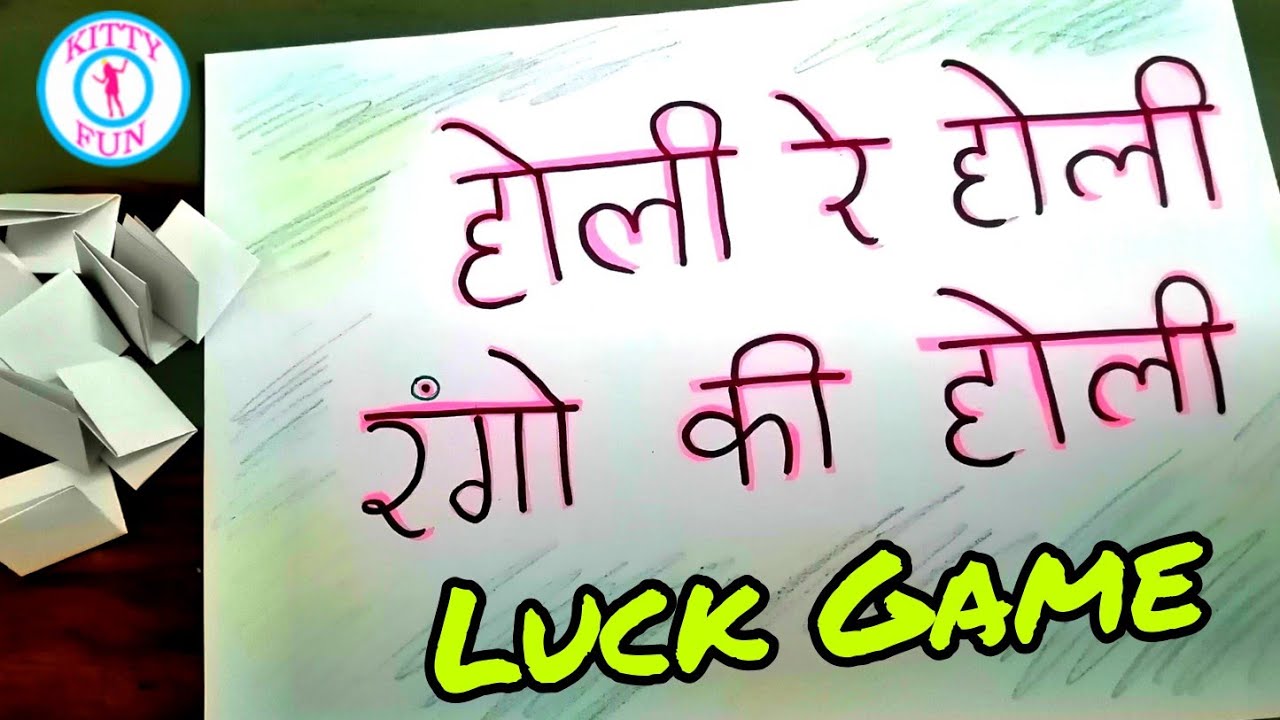 KITTY
FUN
होली रे होली
रंगो की होली
LUCK GAME